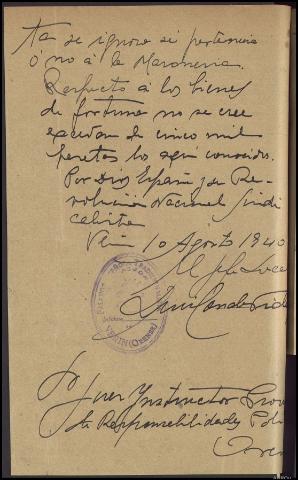 tas se ignora si pertenecia
ó no á la Masoneria.
Respecto á los bienes
de fortuna no se cree
excedan de cinco mil
pesetas los aqui conocidos.
Por Dios España y su Re-
volución Nacional Sindi
calista
Verin 10 Agosto 1940
El Jefe Local
VERIN (ORENSE)
Sr Juez Instructor Prov
de Responsabilidades Pol